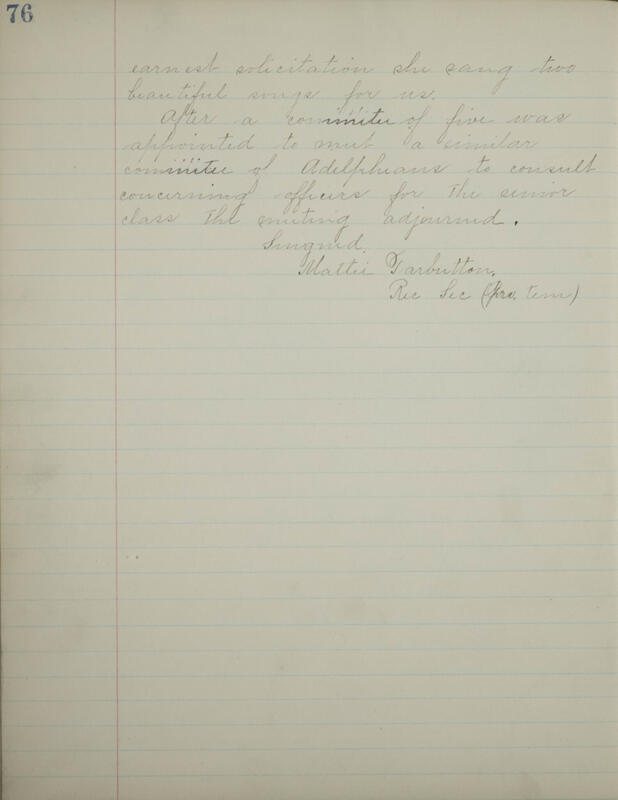 76
earnest solicitation she sang two
beautiful songs for us.
After a committee of five was
appointed to meet a similar
committee of Adelphians to consult
concerning officers for the senior
class the meeting adjourned.
Singned.
Mattie Tarbutton.
Rec Sec (pro. tem)